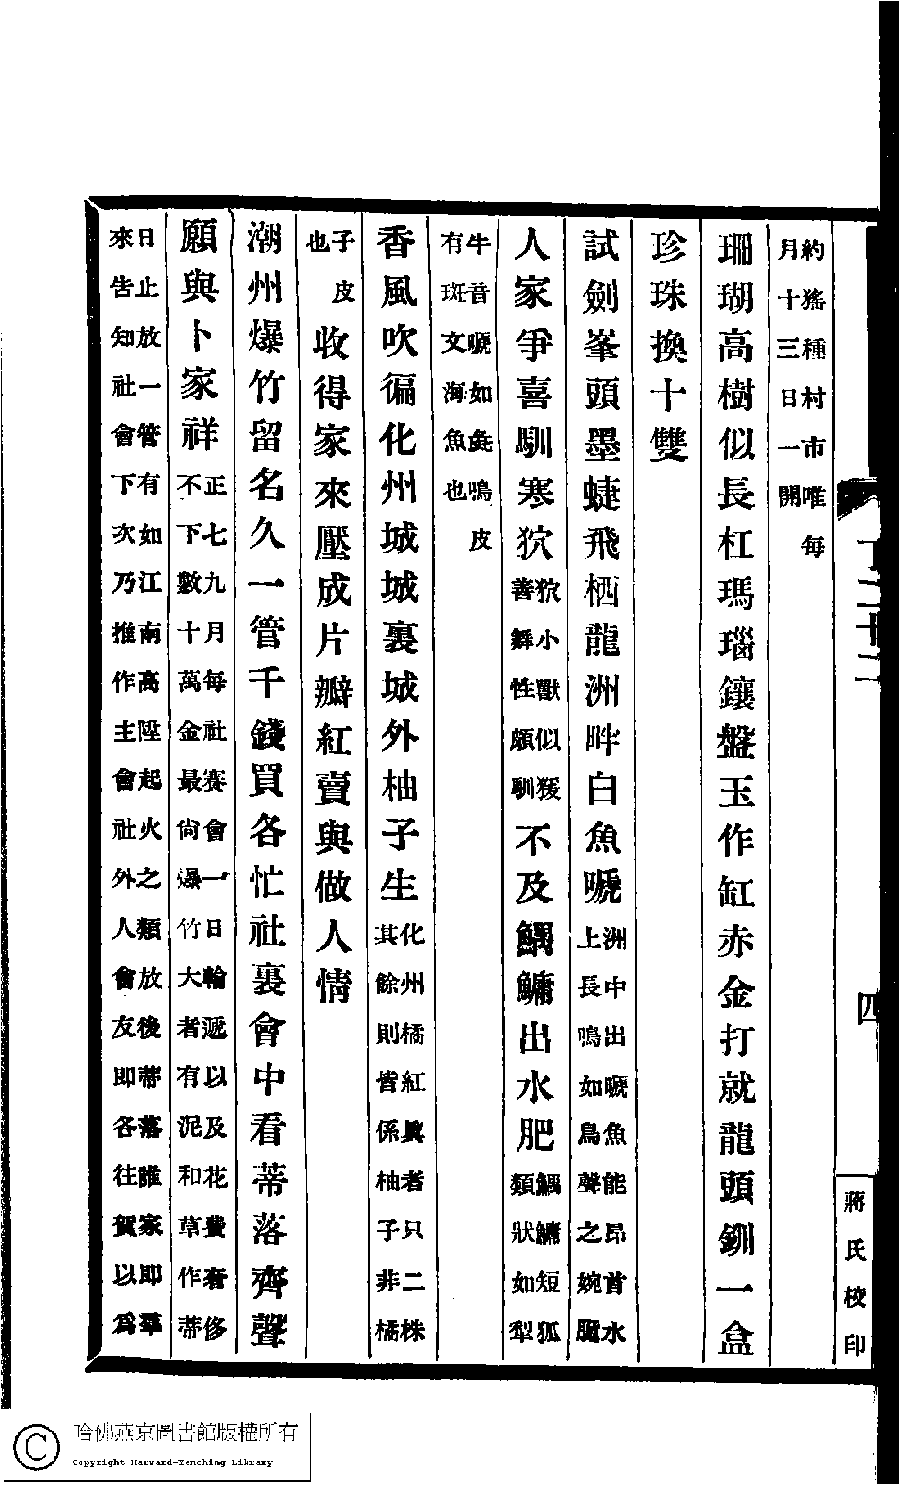 約猺種村市唯每
月十三日一開
珊瑚高樹似長杠瑪瑙鑲盤玉作缸赤金打就龍頭釧一盒
珍珠換十雙
試劍峯頭墨蜨飛栖龍洲畔白魚嗁洲中出嗁魚能昂首水
上長鳴如鳥聲之婉
人家爭喜馴寒狖狖小獸似猨
善舞性頗馴不及鰅鱅出水肥鰅鱅短狐
類狀如犁
牛音嗁如彘鳴皮
有斑文海魚也
香風吹徧化州城城裏城外柚子生化州橘紅眞者只二株
其餘則皆係柚子非橘
子皮
也收得家來壓成片瓣紅賣與做人情
潮州爆竹留名久一管千錢買各忙社裏會中看蒂落齊聲
願與卜家祥正七九月每社賽會一日輪遞以及花費奢侈
不下數十萬金最尙爆竹大者有泥和草作蒂
日止放一管有如江南高陞起火之類放後蒂落誰家卽羣
來告知社會下次乃推作主會社外人會友卽各往賀以爲
四
蔣氏校印
哈佛燕京圖書館版權所有
Copyright Harvard-Yenching Library